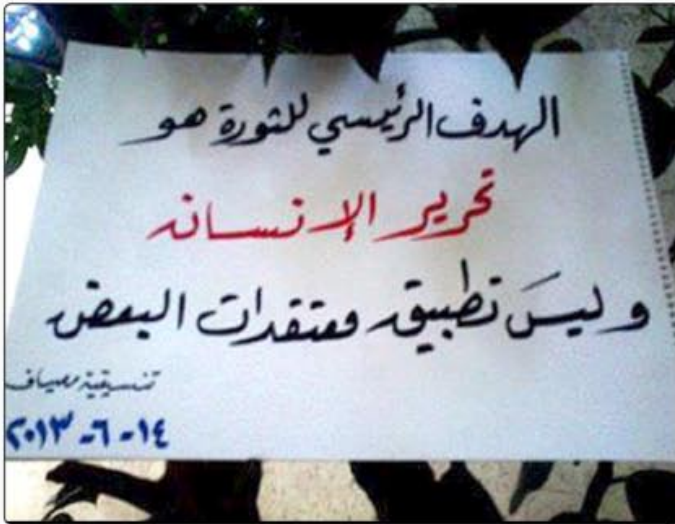 الهدف الرئيسي للثورة هو
تحرير الإنسان
وليسَ تطبيق معتقدات البعض
تنسيقية مصياف
١٤-٦-٢٠١٣